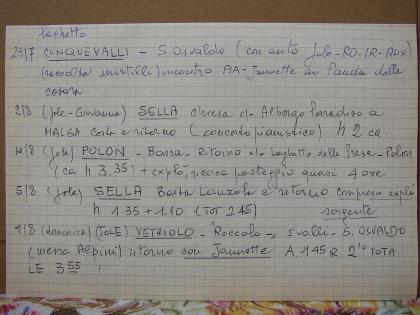 laghetto
29/7 CINQUEVALLI - S. Osvaldo (con auto Jole - RO - IR - AUX)
(raccolta mirtilli) incontro PIA - Jannette in Panda dalla
2/8 (Jole - Giovanna) SELLA chiesa c/o Albergo Paradiso a
MALGA Costa e ritorno (concerto pianistico) h 2 ca
4/8 (Jole) POLON - Bassa - Ritorno c/o laghetto delle Prese - Polon
(ca h 3,35) + explo, ricerca posteggio quasi 4 ore
5/8 (Jole) SELLA Baita Lanzola e ritorno compreso explò
h 1.35 + 1.10 (TOT 2.45) sorgente
9/8 (domenica) (JOLE) VETRIOLO - Roccolo - 5 valli - S. OSVALDO
(messa Alpini) ritorno con Jannette A. 1.45 R. 2.10 TOTA
LE 3.55